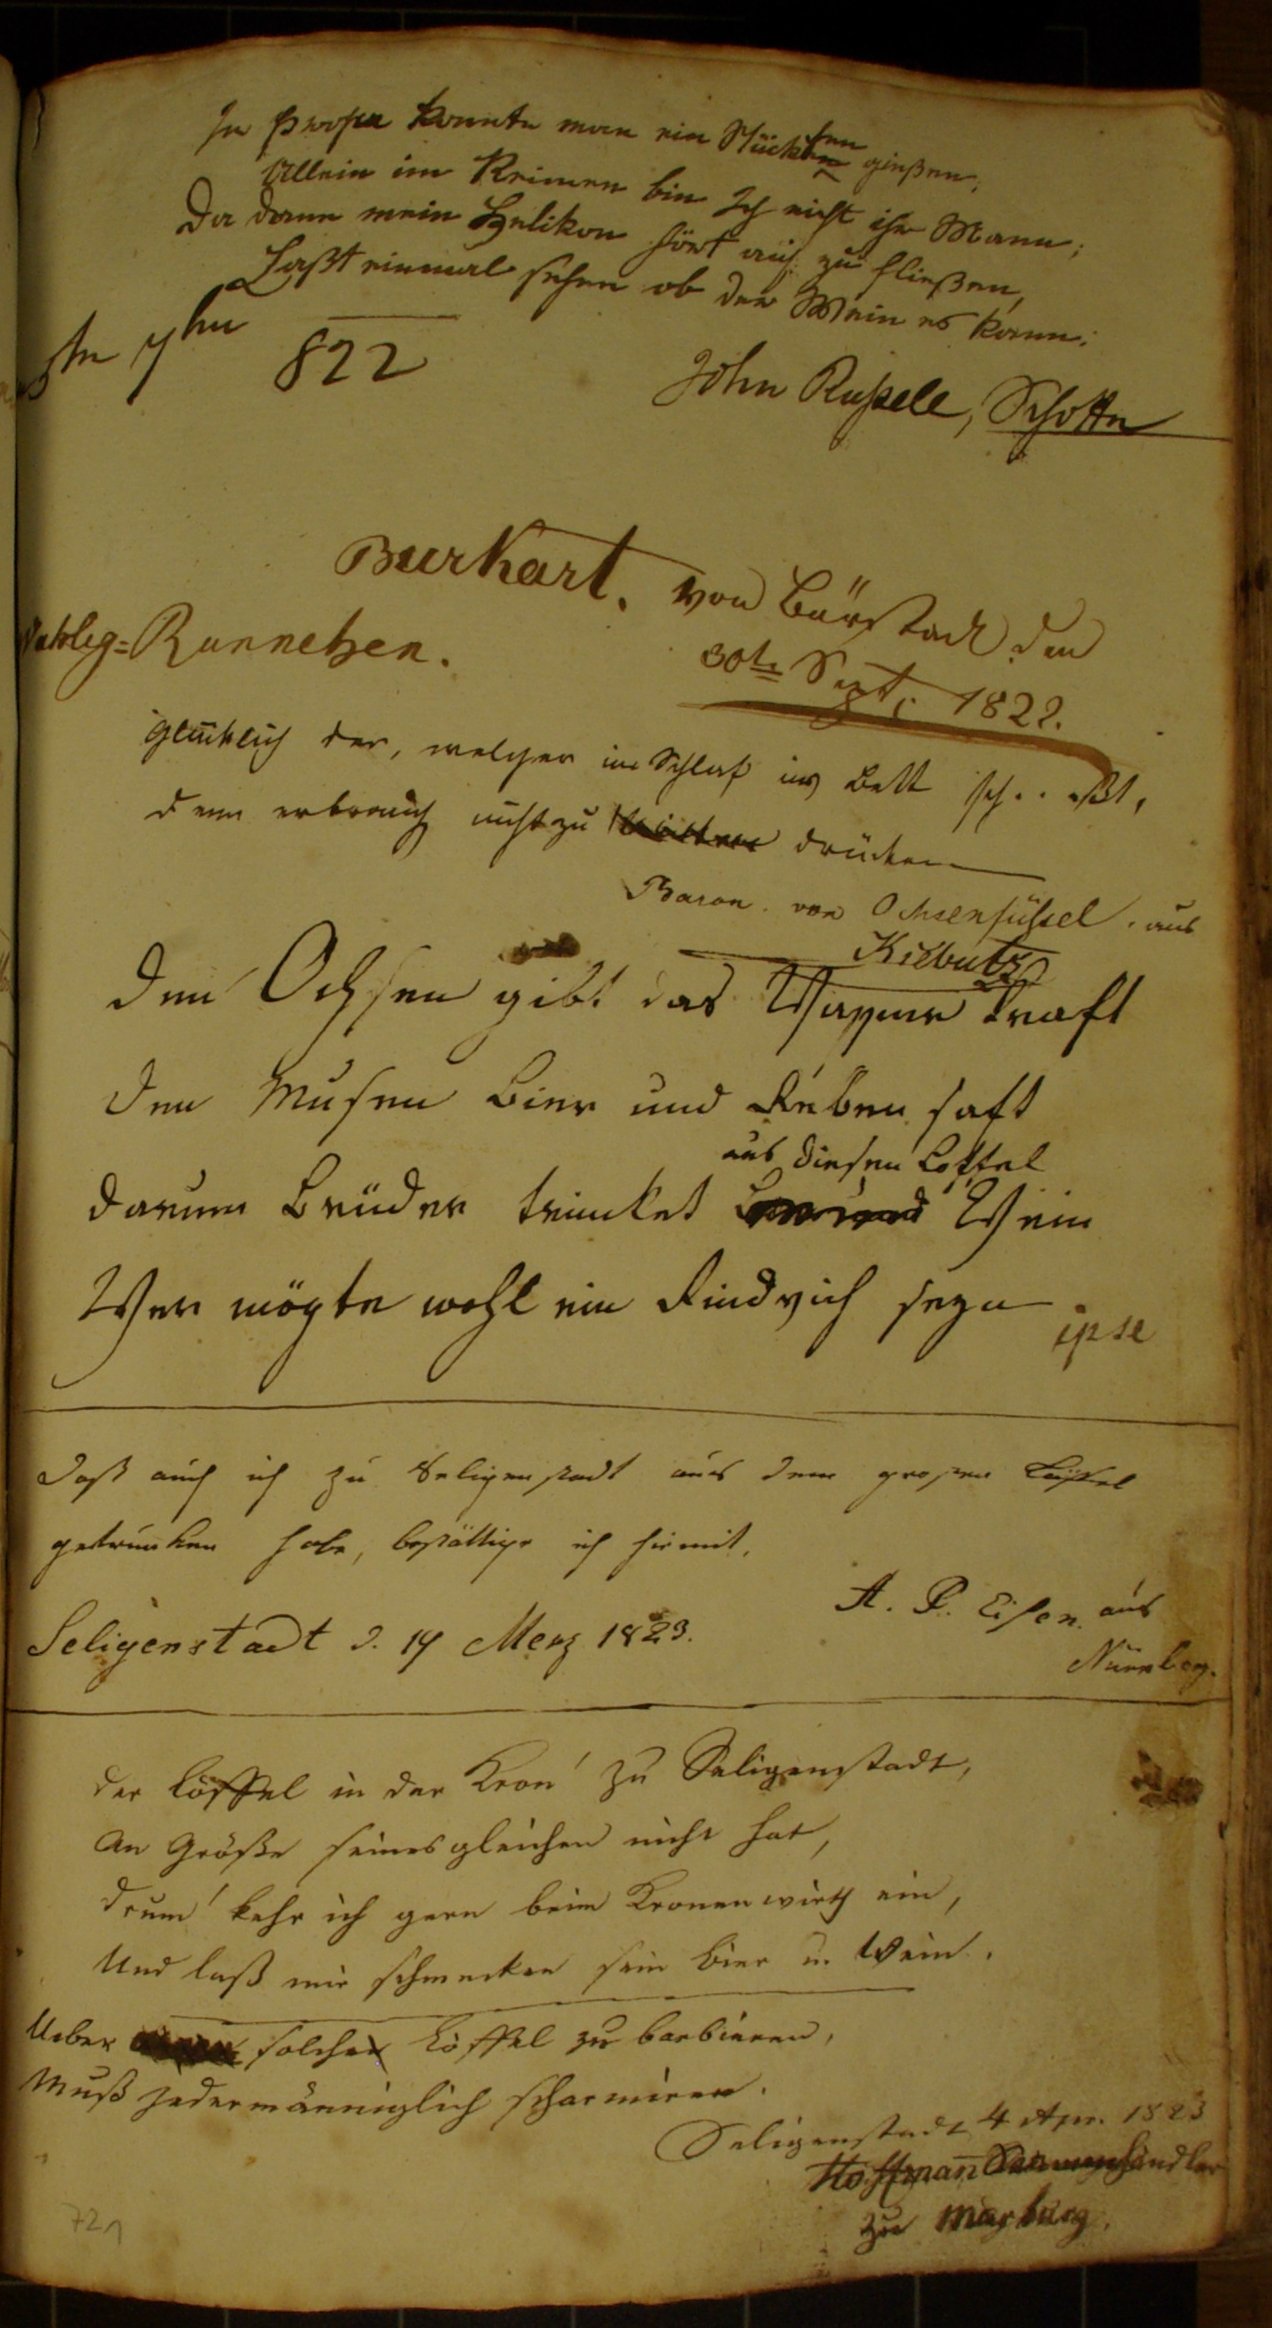 In Prosa konnte man ein Stückchen gießen,
Allein im Reimen bin Ich nicht ihr Mann;
Da dann mein Helikon hört auf zu fließen,
Laßt einmal sehen ob der Wein es kann.
822
John Russell, Schotte
Burkart. von Bürstadt den
30te Sept. 1822.
Glücklich der, welcher im Schlaf ins Bett sch..eßt,
denn er brauch nicht zu drücken
Baron von Ochsenfüssel. aus
Kilbutz
Dem Ochsen gibt das Wasser Kraft
Den Musen Bier und Reben saft
aus diesen Löffel
darum Brüder trinket Wein
Wer mögte wohl ein Rindvieh seyn
ipse
Daß auch ich zu Seligenstadt aus dem großen Löffel
getrunken habe, bestättige ich hiemit.
A. P. Eisen aus
Nürnberg.
Seligenstadt d. 14 Merz 1823.
Der Löffel in der Kron' zu Seligenstadt,
An Größe seines gleichen nicht hat,
Drum' kehr ich gern beim Kronenwirth ein,
Und laß mir schmecken sein Bier u. Wein.
Ueber solchen Löffel zu barbieren,
Muß jedermänniglich scharmiren.
Seligenstadt 4 Apr. 1823
Hoffmann
zu Marburg.
721